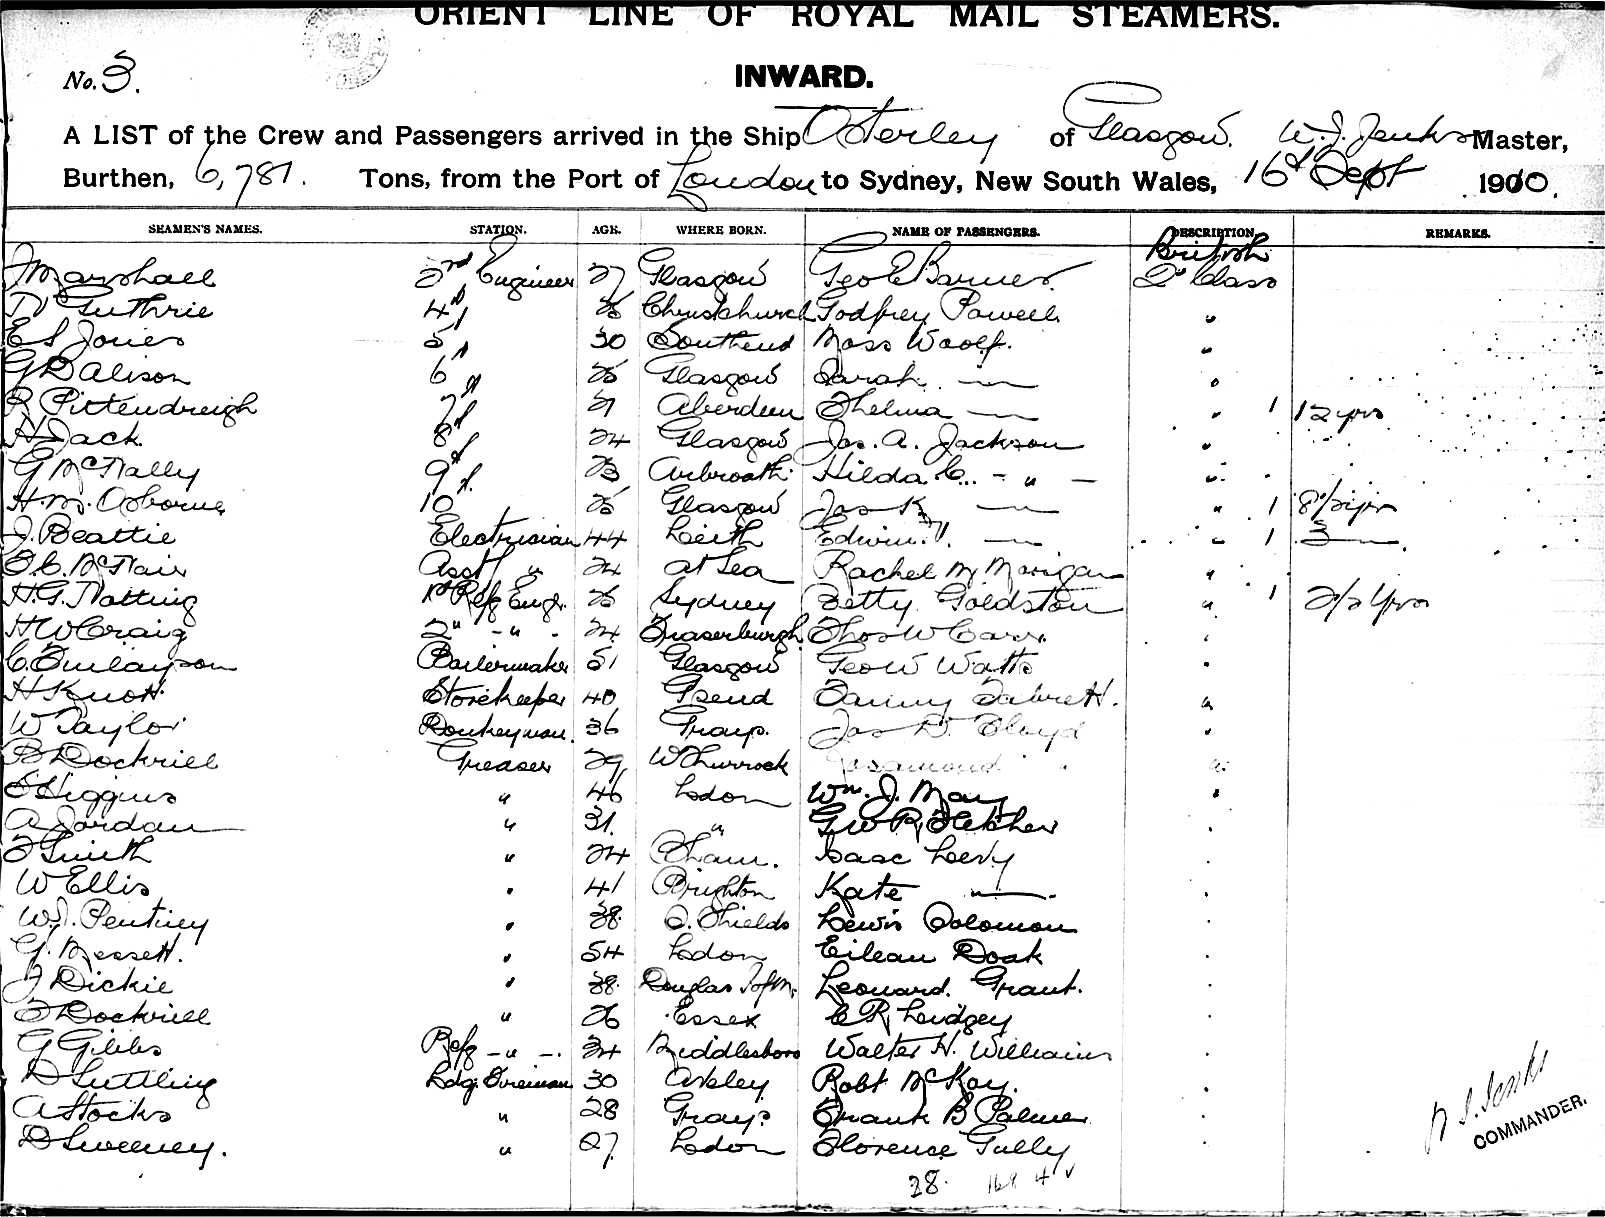 ORIENT LINE OF ROYAL MAIL STEAMERS.
No. 3.
INWARD.
A LIST of the Crew and Passengers arrived in the Ship Osterley of Glasgow. W. J. Jenks Master,
Burthen, 6,781. Tons, from the Port of London to Sydney, New South Wales, 16th Sept 1910.
SEAMEN'S NAMES. STATION. AGE. WHERE BORN. NAME OF PASSENGERS. DESCRIPTION. REMARKS.
British
J Marshall 3rd Engineer 27 Glasgow Geo E Barnes. 2d Class
Guthrie 4th 26 Christchurch Godfrey Powell. "
E S Jones 5th 30 Southend Moss Woolf. "
G Dalison 6th 26 Glasgow Sarah — " — "
R Pittendreigh 7th 27 Aberdeen Thelma — " — " 1 12 yrs
H Jack 8th 24 Glasgow Jas. A. Jackson "
G McNally 9th 23 Arbroath Hilda C. - " - "
H. M. Osborne 10 26 Glasgow Jas K — " — " 1 8 1/2 yrs
J. Beattie Electrician 44 Leith Edwin — " — " 1 3 — " —
McNair Asst " 24 at Sea Rachel M Morigan "
H. G. Natting 1st Refg Engr. 26 Sydney Betty Goldston " 1 2 1/2 yrs
H W Craig 2nd - " - 24 Fraserburgh Thos W Carr. "
C. Finlayson Boilermaker 51 Glasgow Geo W Watts "
H Knott Storekeeper 40 Gsend Fanny Tabrett. "
W Taylor Donkeyman. 36 Grays. Jas D. Cloyd "
B Dockrill Greaser 29 W Thurrock Rosamond " "
E Higgins " 46 Ldon Wm. J. May "
A Jordan " 31. " G W R Fletcher "
F Smith " 24 Oham. Isaac Levy "
W Ellis " 41 Brighton Kate — " — "
W. J. Pentney " 38 S. Shields Lewis Solomon "
G. Bessett. " 54 Ldon Eilean Doak "
J Dickie " 38 Douglas I of M. Leonard Grant. "
F Dockrill " 26 Essex C R Lidgey "
G Gibbs Refg - " - 34 Middlesboro Walter H. Williams "
D Suttling Ldg. Fireman 30 Arkley Robt McKay. "
A Stocks " 28 Grays Frank B Palmer "
D Sweeney. " 27 Ldon Florence Gully "
28. 4
COMMANDER.